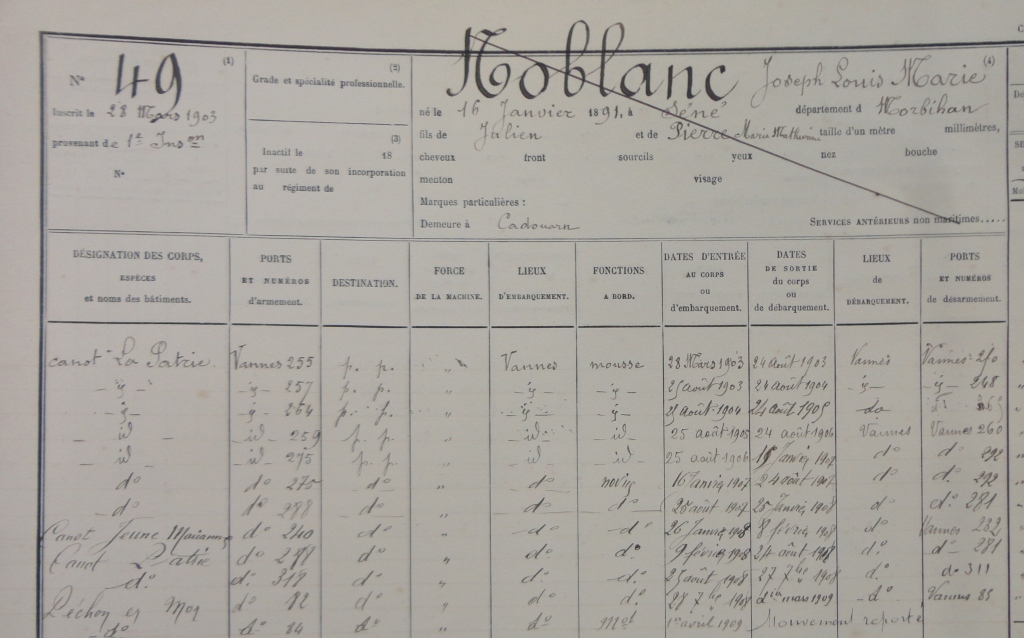 Nº 49 (1)
Inscrit le 28 Mars 1903
provenant de 1re Inson
Nº
(2)
Grade et spécialité professionnelle.
(3)
Inactif le 18
par suite de son incorporation
au régiment de
Noblanc Joseph Louis Marie (4)
né le 16 Janvier 1891, à Séné département d Morbihan
fils de Julien et de Pierre Marie Mathurine taille d'un mètre millimètres,
cheveux front sourcils yeux nez bouche
menton visage
Marques particulières :
Demeure à Cadouarn SERVICES ANTÉRIEURS non maritimes.....
DÉSIGNATION DES CORPS, ESPÈCES et noms des bâtiments.
PORTS ET NUMÉROS d'armement.
DESTINATION.
FORCE DE LA MACHINE.
LIEUX D'EMBARQUEMENT.
FONCTIONS A BORD.
DATES D'ENTRÉE AU CORPS ou d'embarquement.
DATES DE SORTIE du corps ou de débarquement.
LIEUX de DÉBARQUEMENT.
PORTS ET NUMÉROS de désarmement.
canot La Patrie. Vannes 255 p. p. " Vannes mousse 28 Mars 1903 24 août 1903 Vannes Vannes
- y - - y - 257 p. p. " - y - - y - 25 août 1903 24 août 1904 - y - - y - 248
- y - - y - 264 p. p. " - y - - y - 25 août 1904 24 août 1905 do
- id - - id - 259 p. p. " - id - - id - 25 août 1905 24 août 1906 Vannes Vannes 260
- id - - id - 275 p. p. " - id - - id - 25 août 1906 15 Janvier 1907 do do 292
do do 275 do " do novice 16 Janvier 1907 24 août 1907 do do 292
do do 278 do " do do 25 août 1907 25 Janvier 1908 do do 281
Canot Jeune Marianne do 240 do " do do 26 Janvier 1908 8 février 1908 do Vannes 232
Canot Patrie do 278 do " do do 9 février 1908 24 août 1908 do do 281
do do 318 do " do do 25 août 1908 27 7bre 1908 do do 311
Péchon er Mor do 82 do " do do 28 7bre 1908 mars 1909 do Vannes 85
do do 84 do " do Mot 1er avril 1909 Mouvement reporté